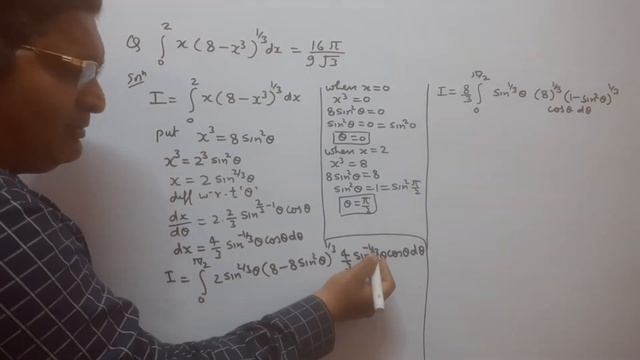 Q ∫₀² x(8-x³)^{1/3} dx = 16π/9√3
Solⁿ
I = ∫₀² x(8-x³)^{1/3} dx
put x³ = 8 sin²θ
x³ = 2³ sin²θ
x = 2 sin^{2/3}θ
diff w.r.t 'θ'
dx/dθ = 2·2/3 sin^{2/3-1}θ cosθ
dx = 4/3 sin^{-1/3}θ cosθ dθ
I = ∫₀^{π/2} 2 sin^{2/3}θ (8-8sin²θ)^{1/3} 4/3 sin^{-1/3}θ cosθ dθ
when x=0
x³=0
8sin²θ=0
sin²θ=0=sin²0
θ=0
when x=2
x³=8
8sin²θ=8
sin²θ=1=sin²π/2
θ=π/2
I = 8/3 ∫₀^{π/2} sin^{1/3}θ (8)^{1/3} (1-sin²θ)^{1/3}
cosθ dθ